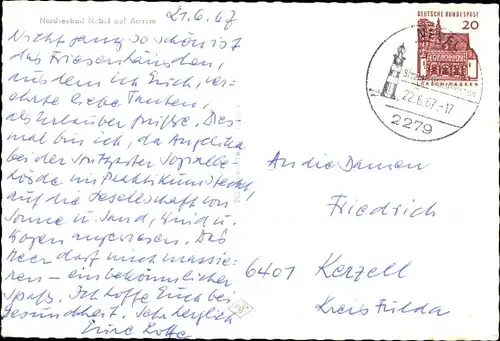 Nordseebad Nebel auf Amrum
21.6.67
Nicht ganz so schön ist
das Friesenhäuschen,
aus dem ich Euch, ver-
ehrte liebe Tanten,
als Urlauber grüße. Dies-
mal bin ich, da Angelika
bei der Stuttgarter Sozialbe
hörde im Praktikum steckt,
auf die Gesellschaft von
Sonne u. Sand, Wind u.
Wogen angewiesen. Das
Meer darf mich massie-
ren – ein bekömmlicher
Spaß. Ich hoffe Euch bei
Gesundheit. Sehr herzlich
Eure Lotte
DEUTSCHE BUNDESPOST
20
NEBEL
22.6.67.-17
2279
An die Damen
Friedrich
6401 Kerzell
Kreis Fulda